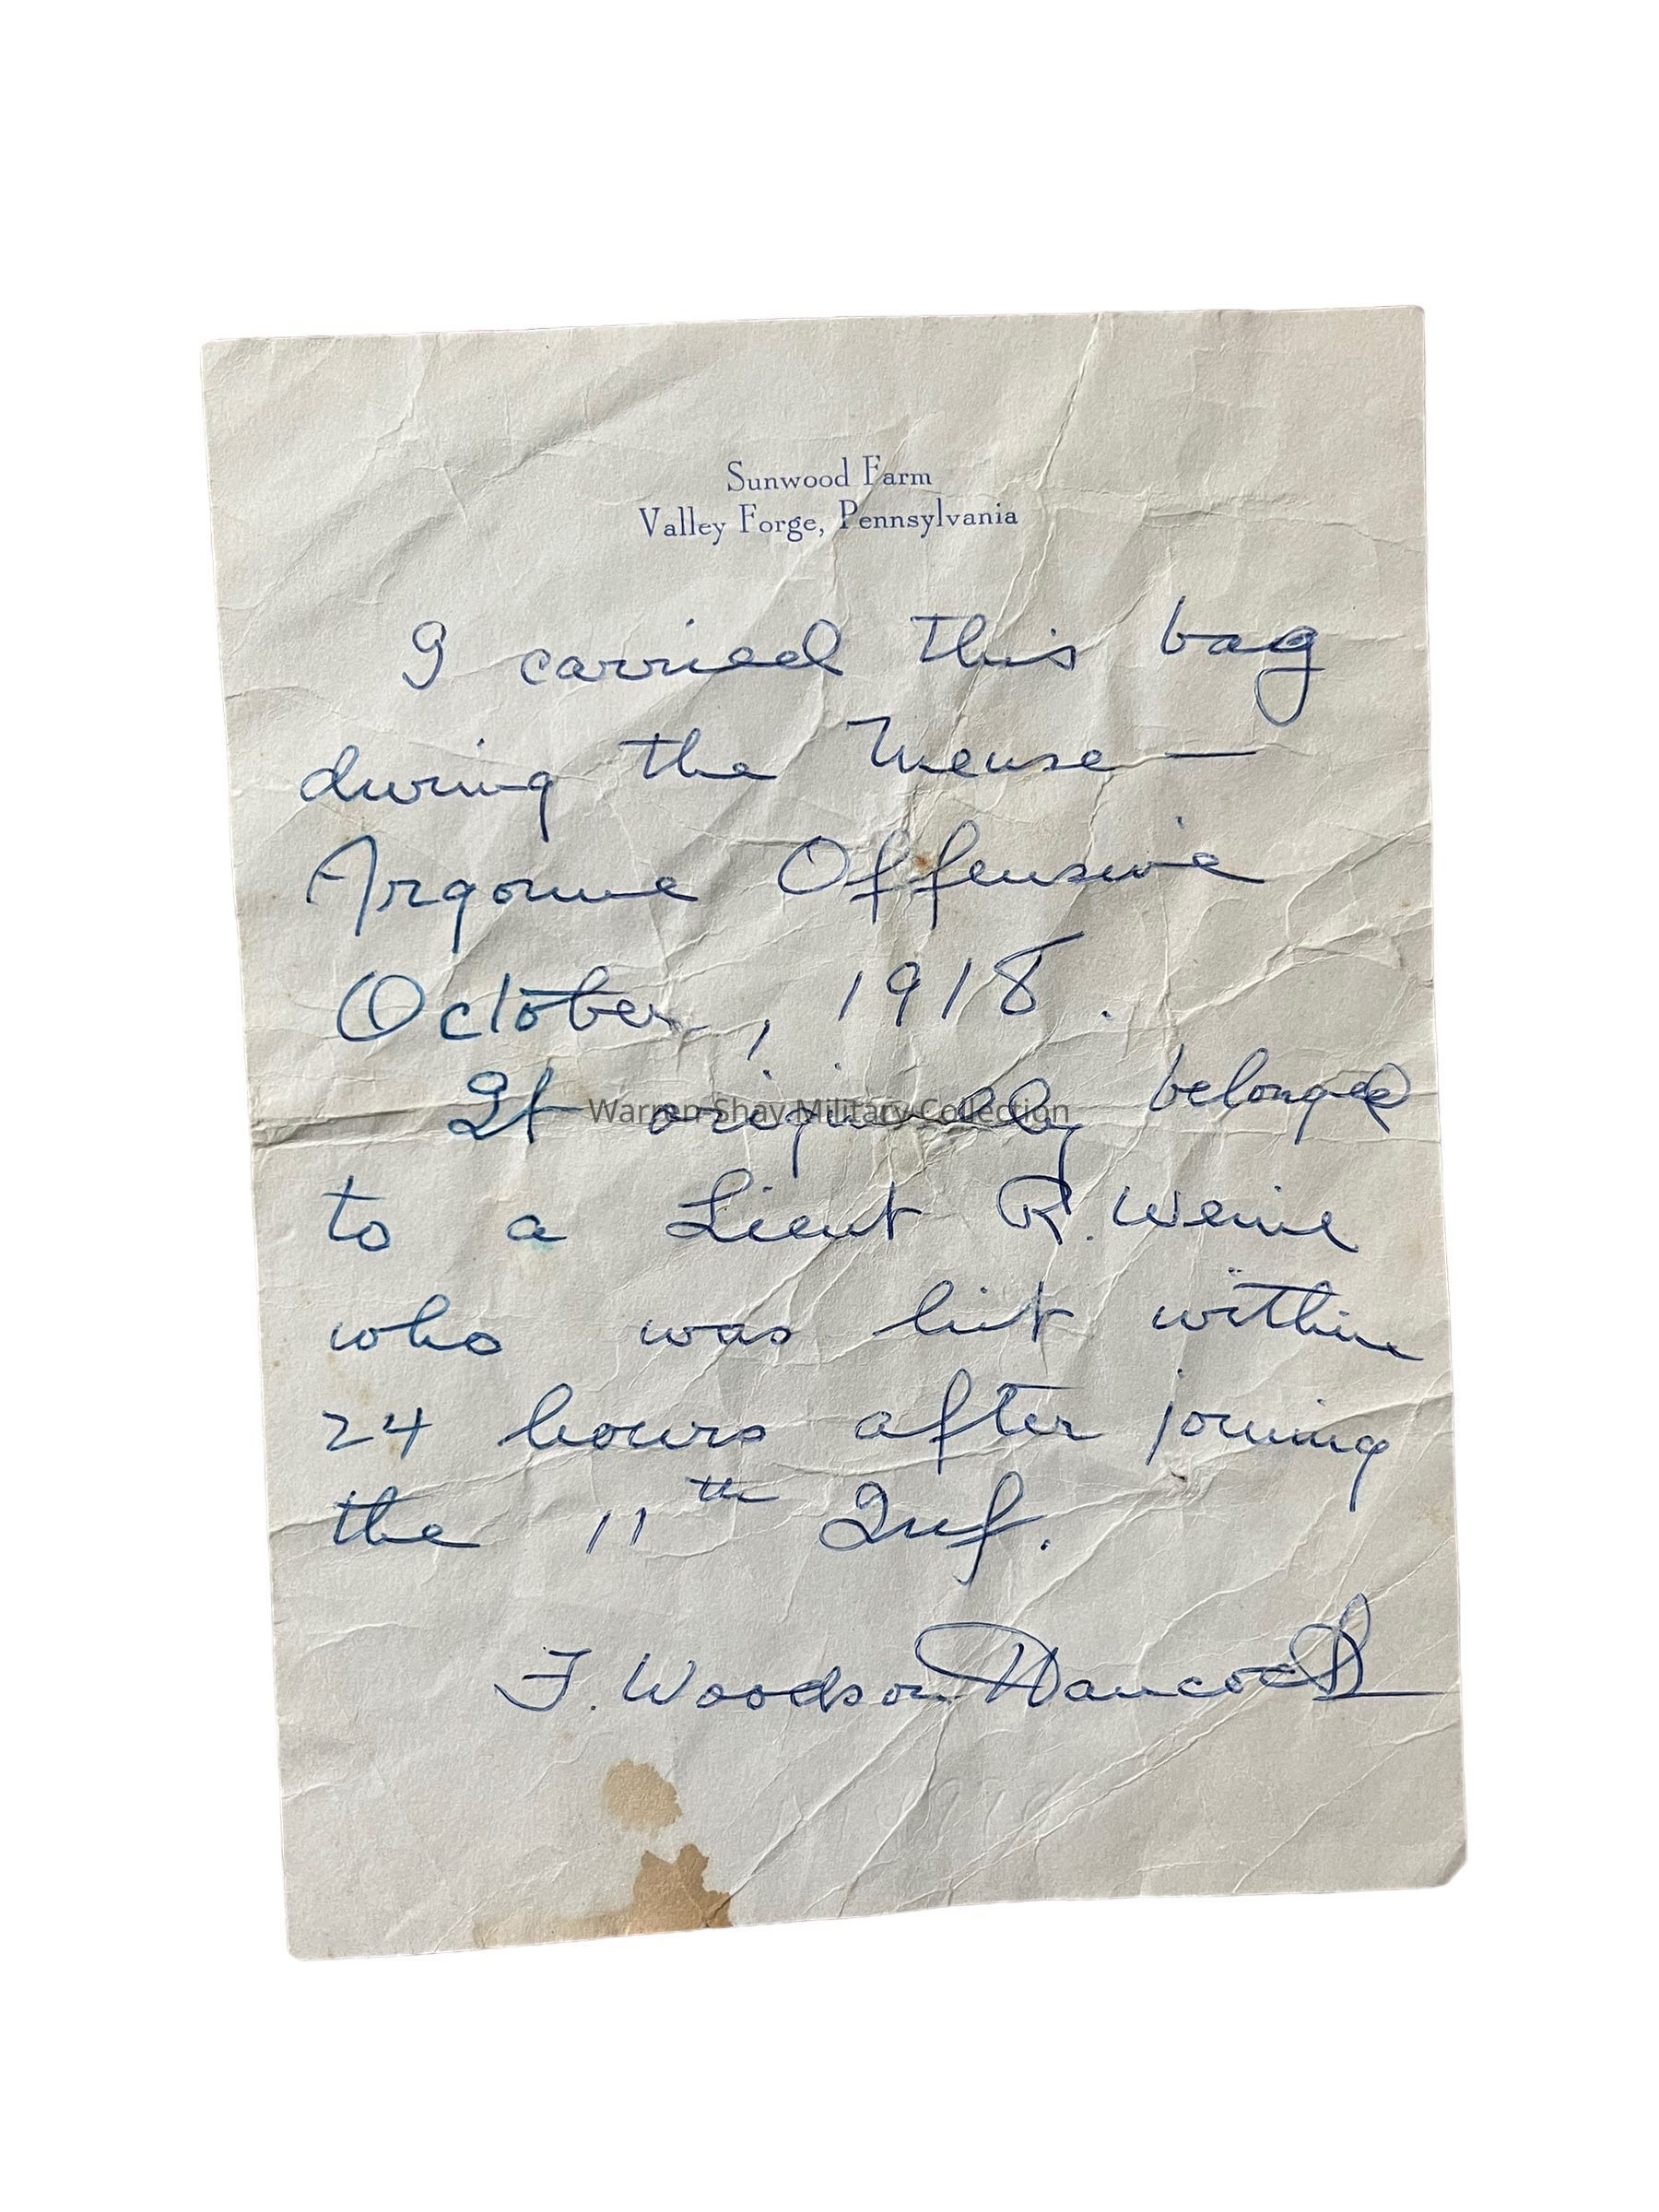 Sunwood Farm
Valley Forge, Pennsylvania
I carried this bag
during the Meuse —
Argonne Offensive
October, 1918.
It originally belonged
Warren Shay Military Collection
to a Lieut R. Weine
who was hit within
24 hours after joining
the 11th Inf.
F. Woodson Hancock